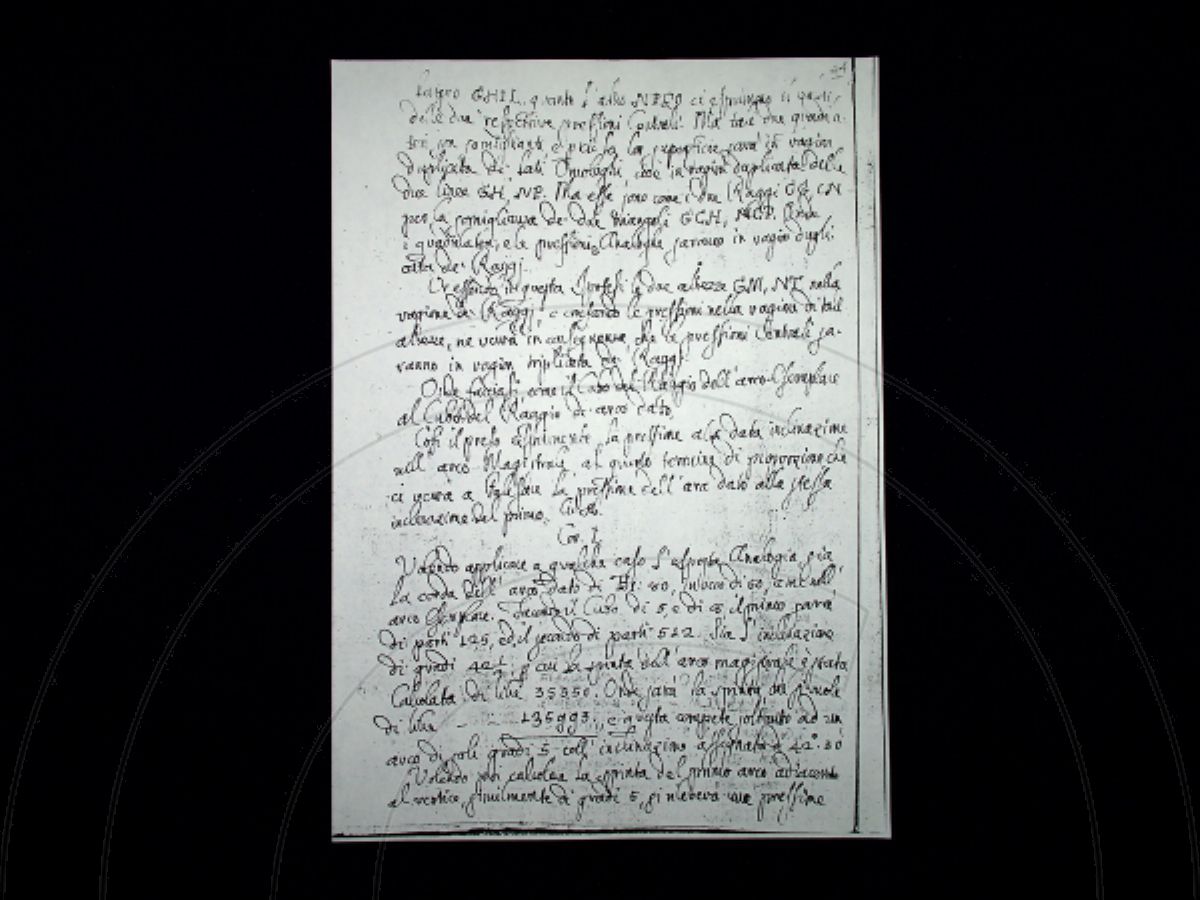 latero GHIL, quanto l'altro NPEQ ci esprimono le quan-
delle due respettive pressioni Centrali. Ma tali due quadrila-
teri son somiglianti, e perciò la lor superficie sarà in ragion
duplicata de' lati Omologhi cioè in ragion duplicata delle
due linee GH, NP. Ma esse sono come i due Raggi CG, CN
per la somiglianza de' due triangoli GCH, NCP. Onde
i quadrilateri, e le pressioni Analoghe saranno in ragion dupli-
cata de' Raggi.
Or essendo in questa Ipotesi le due altezze GM, NT nella
ragione de' Raggi, e crescendo le pressioni nella ragion di tali
altezze, ne verrà in conseguenza che le pressioni Centrali sa-
ranno in ragion triplicata de' Raggi.
Onde facciasi come il Cubo del Raggio dell'arco Esemplare
al Cubo del Raggio di arco dato,
Così il peso esprimente la pressione alla data inclinazione
nell'arco Magistrale, al quarto termine di proporzione che
ci verrà a palesare la pressione dell'arco dato alla stessa
inclinazione del primo.
Cor. I.
Volendo applicare a qualche caso l'esposta Analogia, sia
la corda dell'arco dato di 80, invece di 50, come nell'
arco Esemplare. Facendo il Cubo di 5, e di 8, il primo sarà
di parti 125, ed il secondo di parti 512. Sia l'inclinazione
di gradi 42½, per cui la spinta dell'arco magistrale è stata
Calcolata di libre 35350. Onde sarà la spinta del
di libre 135993, e questa compete soltanto ad un
arco di soli gradi 5 coll'inclinazione assegnata di 42°.30'
Volendo poi calcolar la spinta del primo arco adiacente
al vertice, similmente di gradi 5, si rileverà una pressione